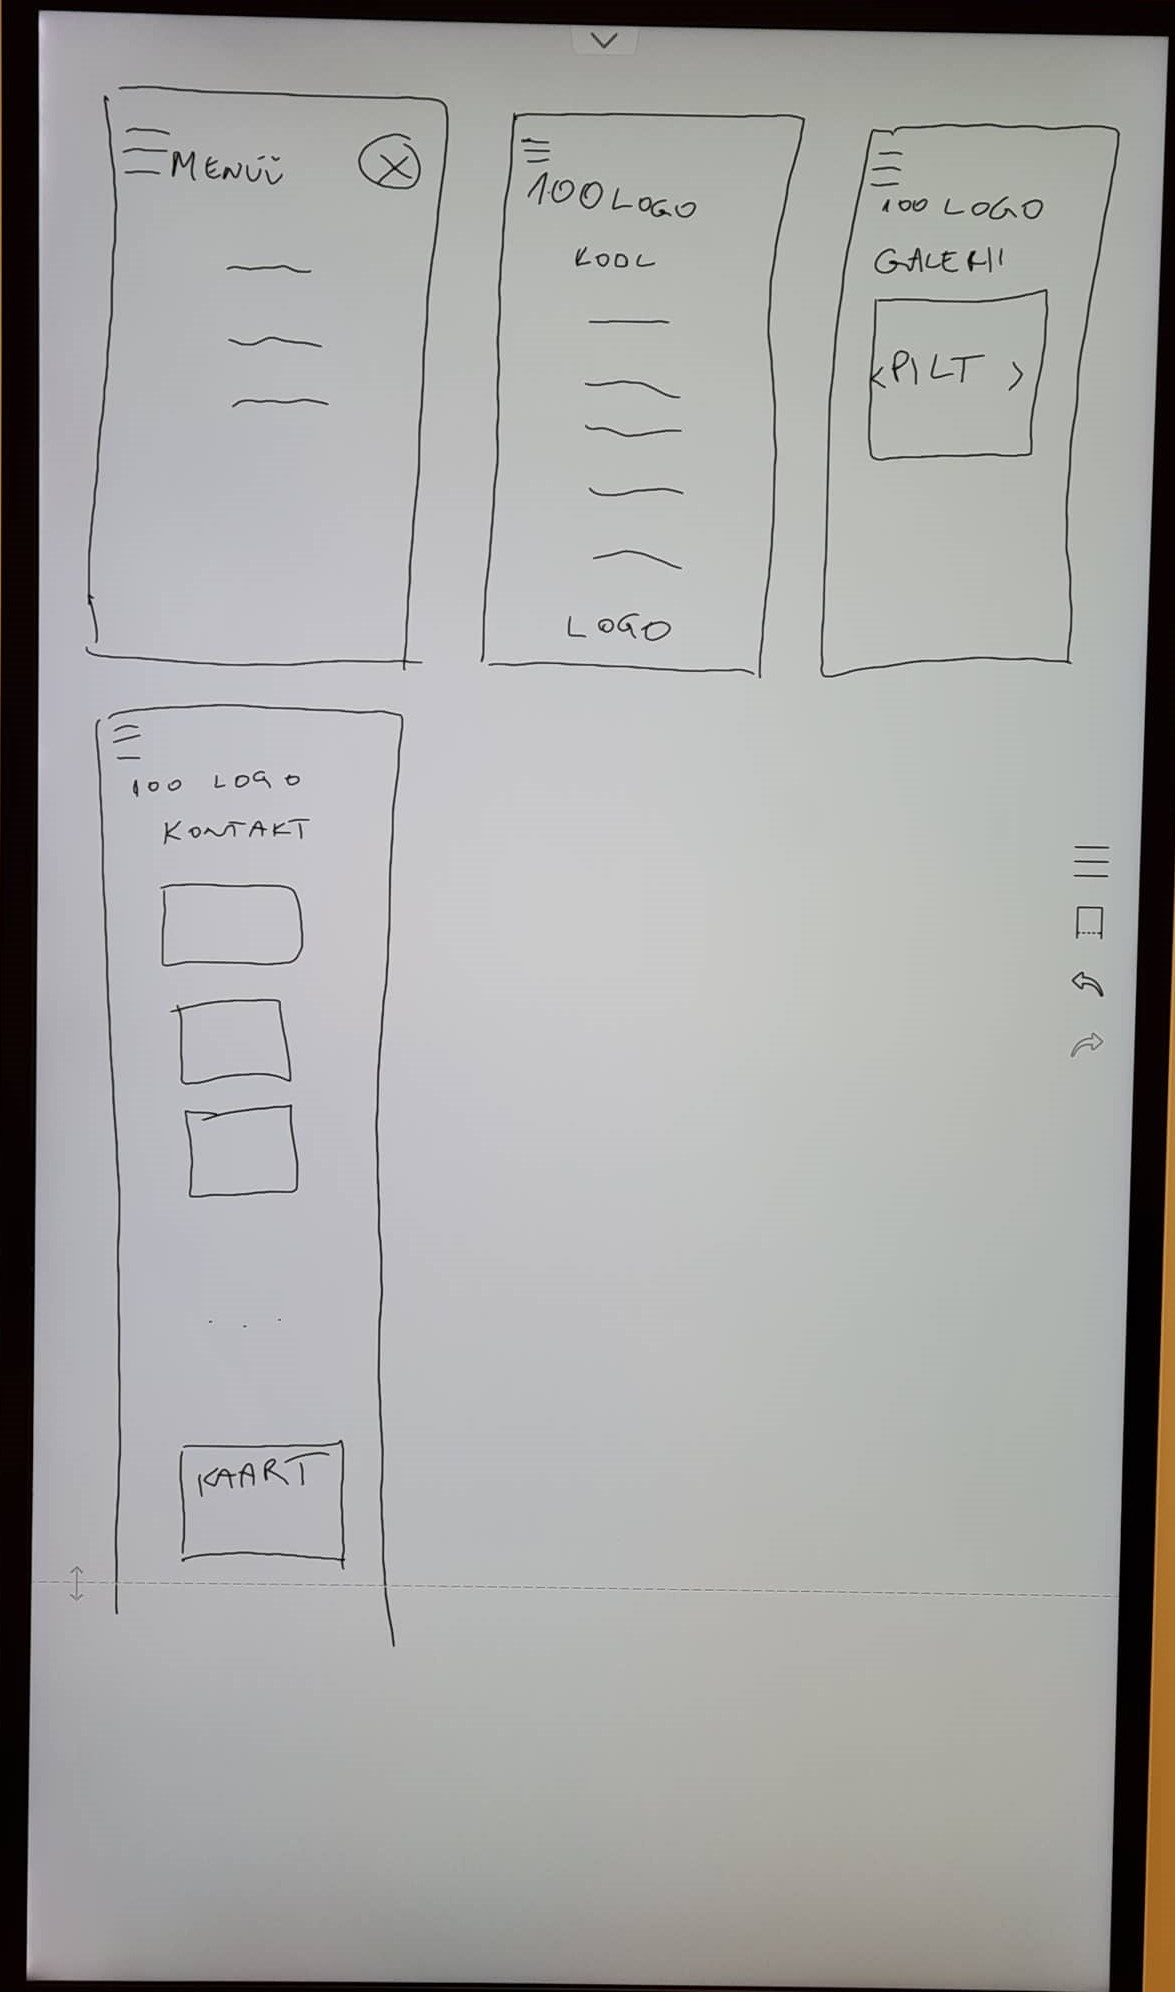 MENÜÜ
100 LOGO
KOOL
LOGO
100 LOGO
GALERII
<PILT >
100 LOGO
KONTAKT
. . .
KAART